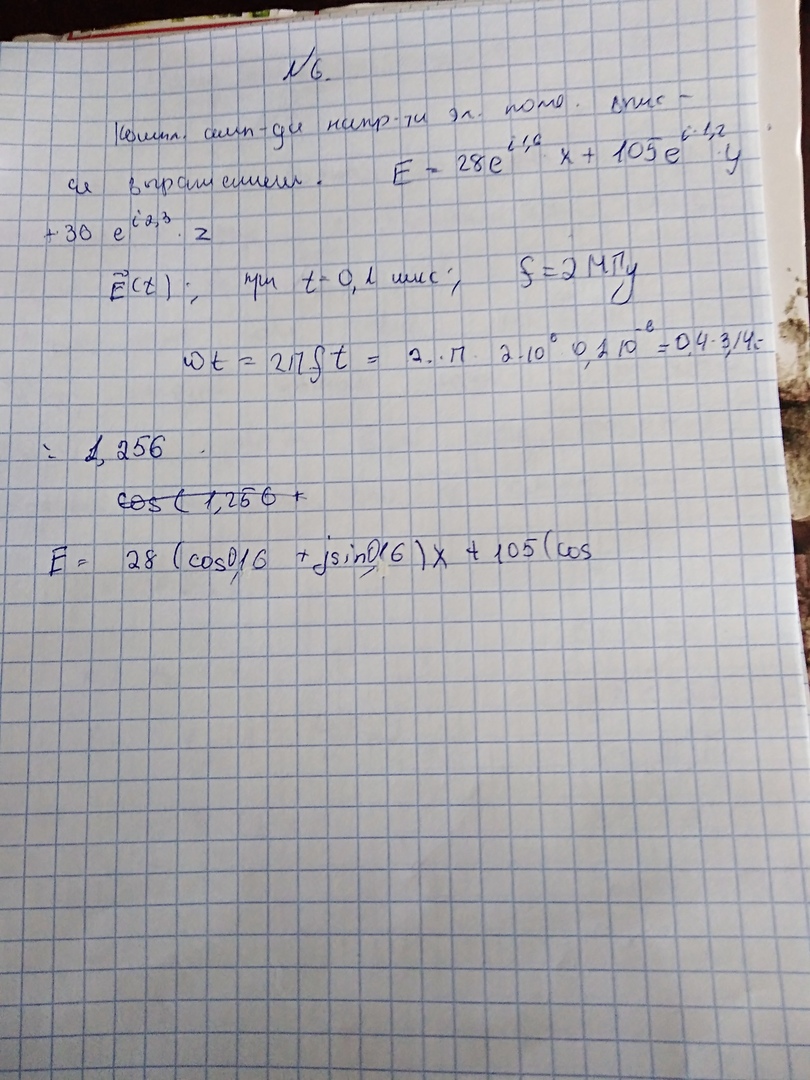 N6.
Компл. амп-да напр-ти эл. поля. опис-
ся выражением. E = 28e^{i1,6} x + 105e^{i·1,2} · y
+ 30 e^{i2,3} · z
E⃗(t); при t = 0,1 мкс; f = 2 МГц
ωt = 2πft = 2·π· 2·10⁶ 0,1 10⁻⁶ = 0,4·3,14=
= 1,256
cos(1,256 +
E = 28 (cos0,16 + jsin0,16) x + 105 (cos